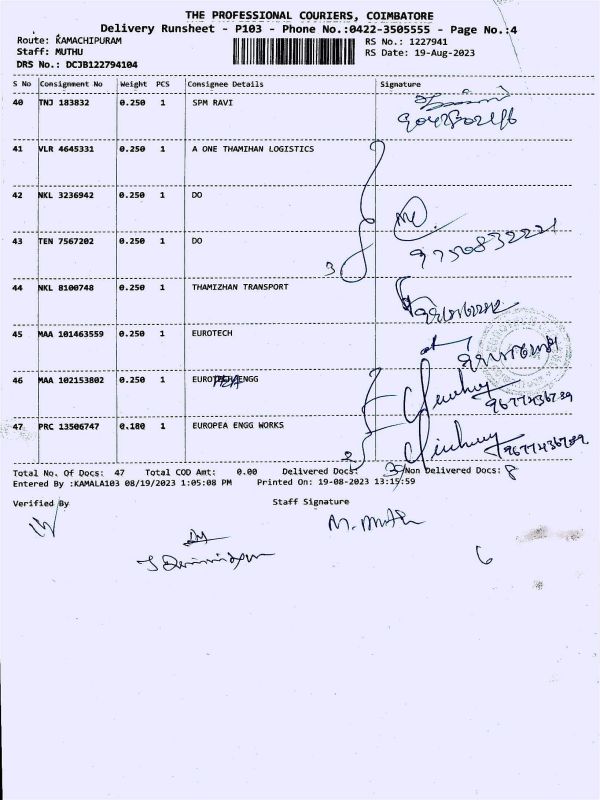 THE PROFESSIONAL COURIERS, COIMBATORE
Delivery Runsheet - P103 - Phone No.:0422-3505555 - Page No.:4
Route: KAMACHIPURAM RS No.: 1227941
Staff: MUTHU RS Date: 19-Aug-2023
DRS No.: DCJB122794104
S No Consignment No Weight PCS Consignee Details Signature
40 TNJ 183832 0.250 1 SPM RAVI
41 VLR 4645331 0.250 1 A ONE THAMIHAN LOGISTICS
42 NKL 3236942 0.250 1 DO
43 TEN 7567202 0.250 1 DO
9750832221
3
44 NKL 8100748 0.250 1 THAMIZHAN TRANSPORT
45 MAA 101463559 0.250 1 EUROTECH
46 MAA 102153802 0.250 1 ENGG
9677436739
47 PRC 13506747 0.180 1 EUROPEA ENGG WORKS
2 9677436739
Total No. Of Docs: 47 Total COD Amt: 0.00 Delivered Docs: 39 Non Delivered Docs: 8
Entered By :KAMALA103 08/19/2023 1:05:08 PM Printed On: 19-08-2023 13:15:59
Verified By Staff Signature
M. Muth